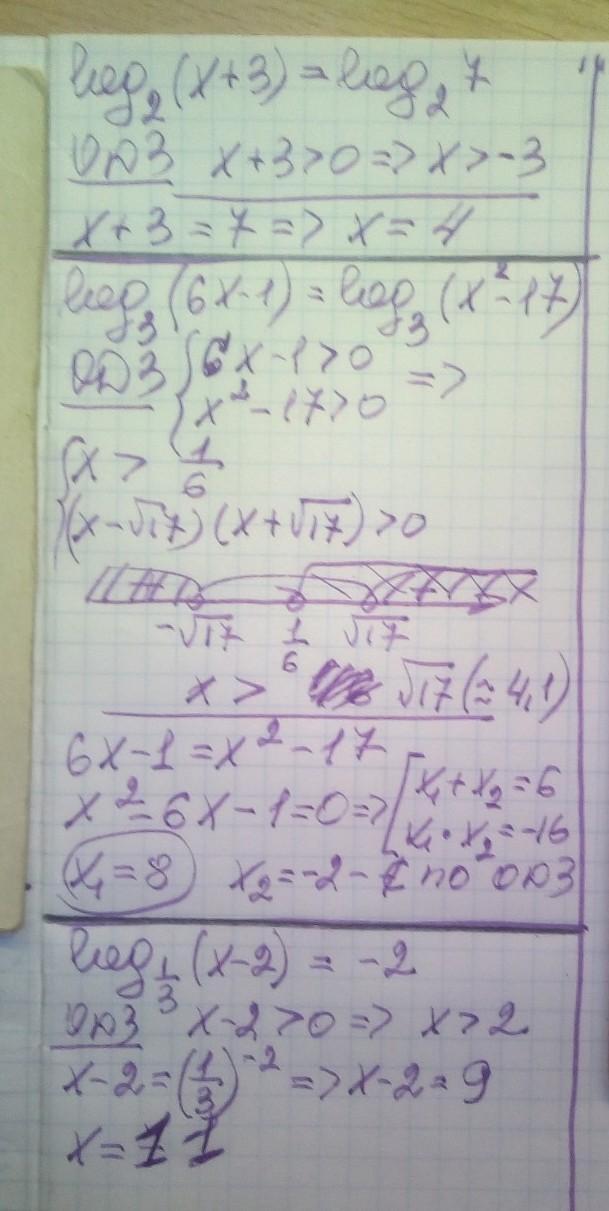 log₂(x+3) = log₂ 7
ОДЗ x+3>0 => x>-3
x+3 = 7 => x = 4
log₃(6x-1) = log₃(x²-17)
ОДЗ { 6x-1>0
x²-17>0 =>
{ x > 1/6
(x-√17)(x+√17)>0
-√17 1/6 √17
x > √17 (≈4,1)
6x-1 = x²-17
x²-6x-1=0 => [ x₁+x₂=6
x₁·x₂=-16
x₁=8 x₂=-2 - ∉ по ОДЗ
log₁/₃(x-2) = -2
ОДЗ x-2>0 => x>2
x-2=(1/3)⁻² => x-2=9
x=11